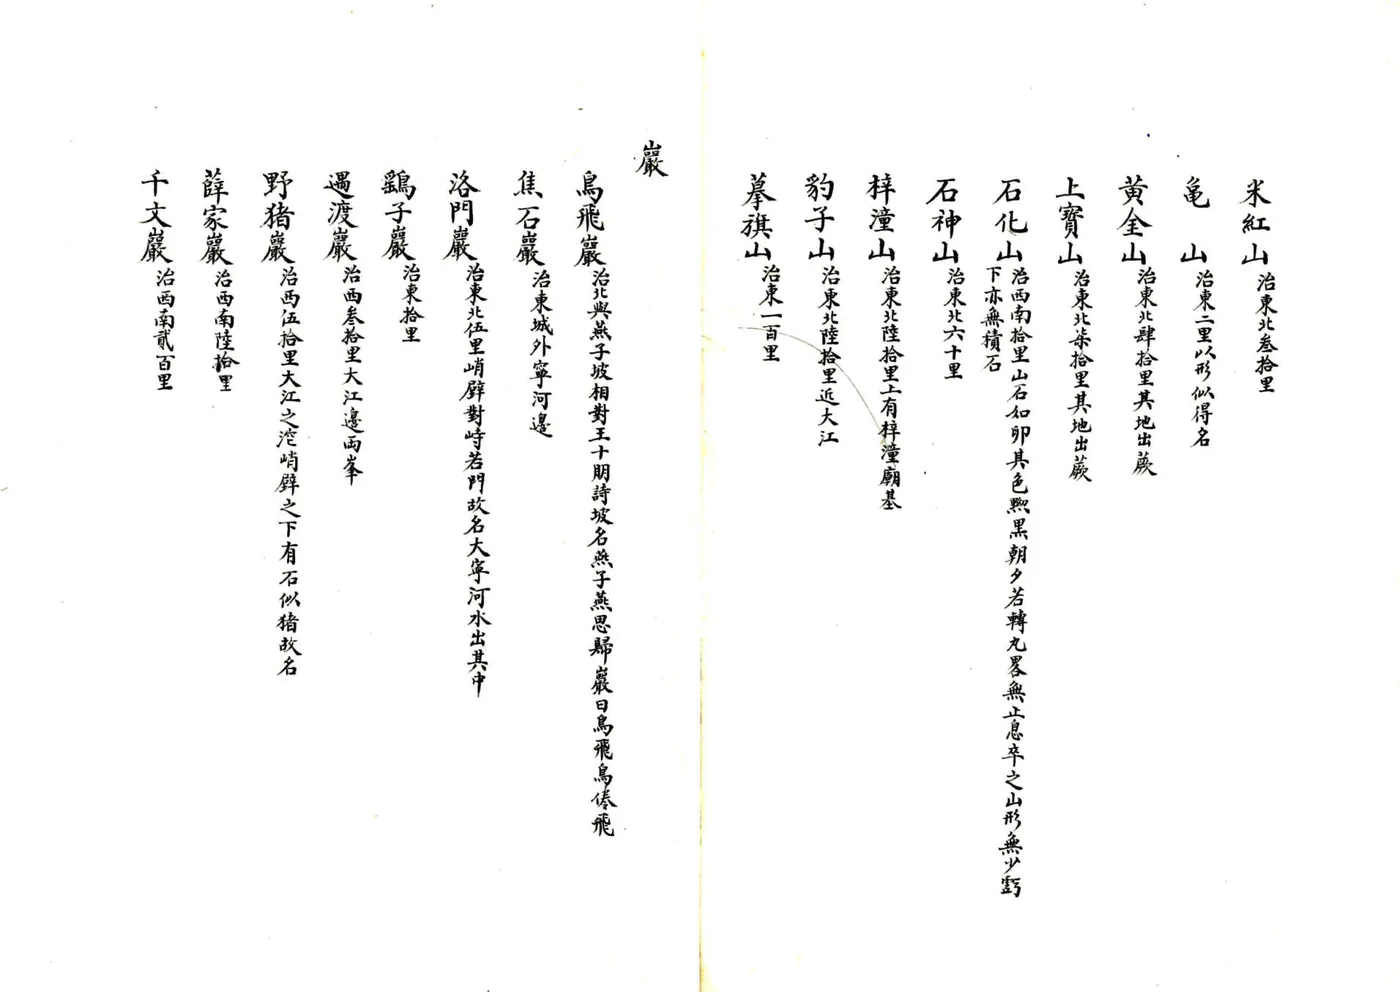 米紅山治東北叁拾里
亀山治東二里以形似得名
黄金山治東北肆拾里其地出蕨
上寳山治東北柒拾里其地出蕨
石化山治西南拾里山石如卵其色黑朝夕若轉丸畧無止息卒之山形無少虧
下亦無積石
石神山治東北六十里
梓潼山治東北陸拾里上有梓潼廟基
豹子山治東北陸拾里近大江
搴旗山治東一百里
巖
鳥飛巖治北與燕子坡相對王十朋詩坡名燕子燕思歸巖曰鳥飛鳥倦飛
焦石巖治東城外寧河邉
洛門巖治東北伍里峭壁對峙若門故名大寧河水出其中
鷂子巖治東拾里
遇渡巖治西叁拾里大江邉両峯
野猪巖治西伍拾里大江之峭壁之下有石似猪故名
薛家巖治西南陸拾里
千文巖治西南貳百里